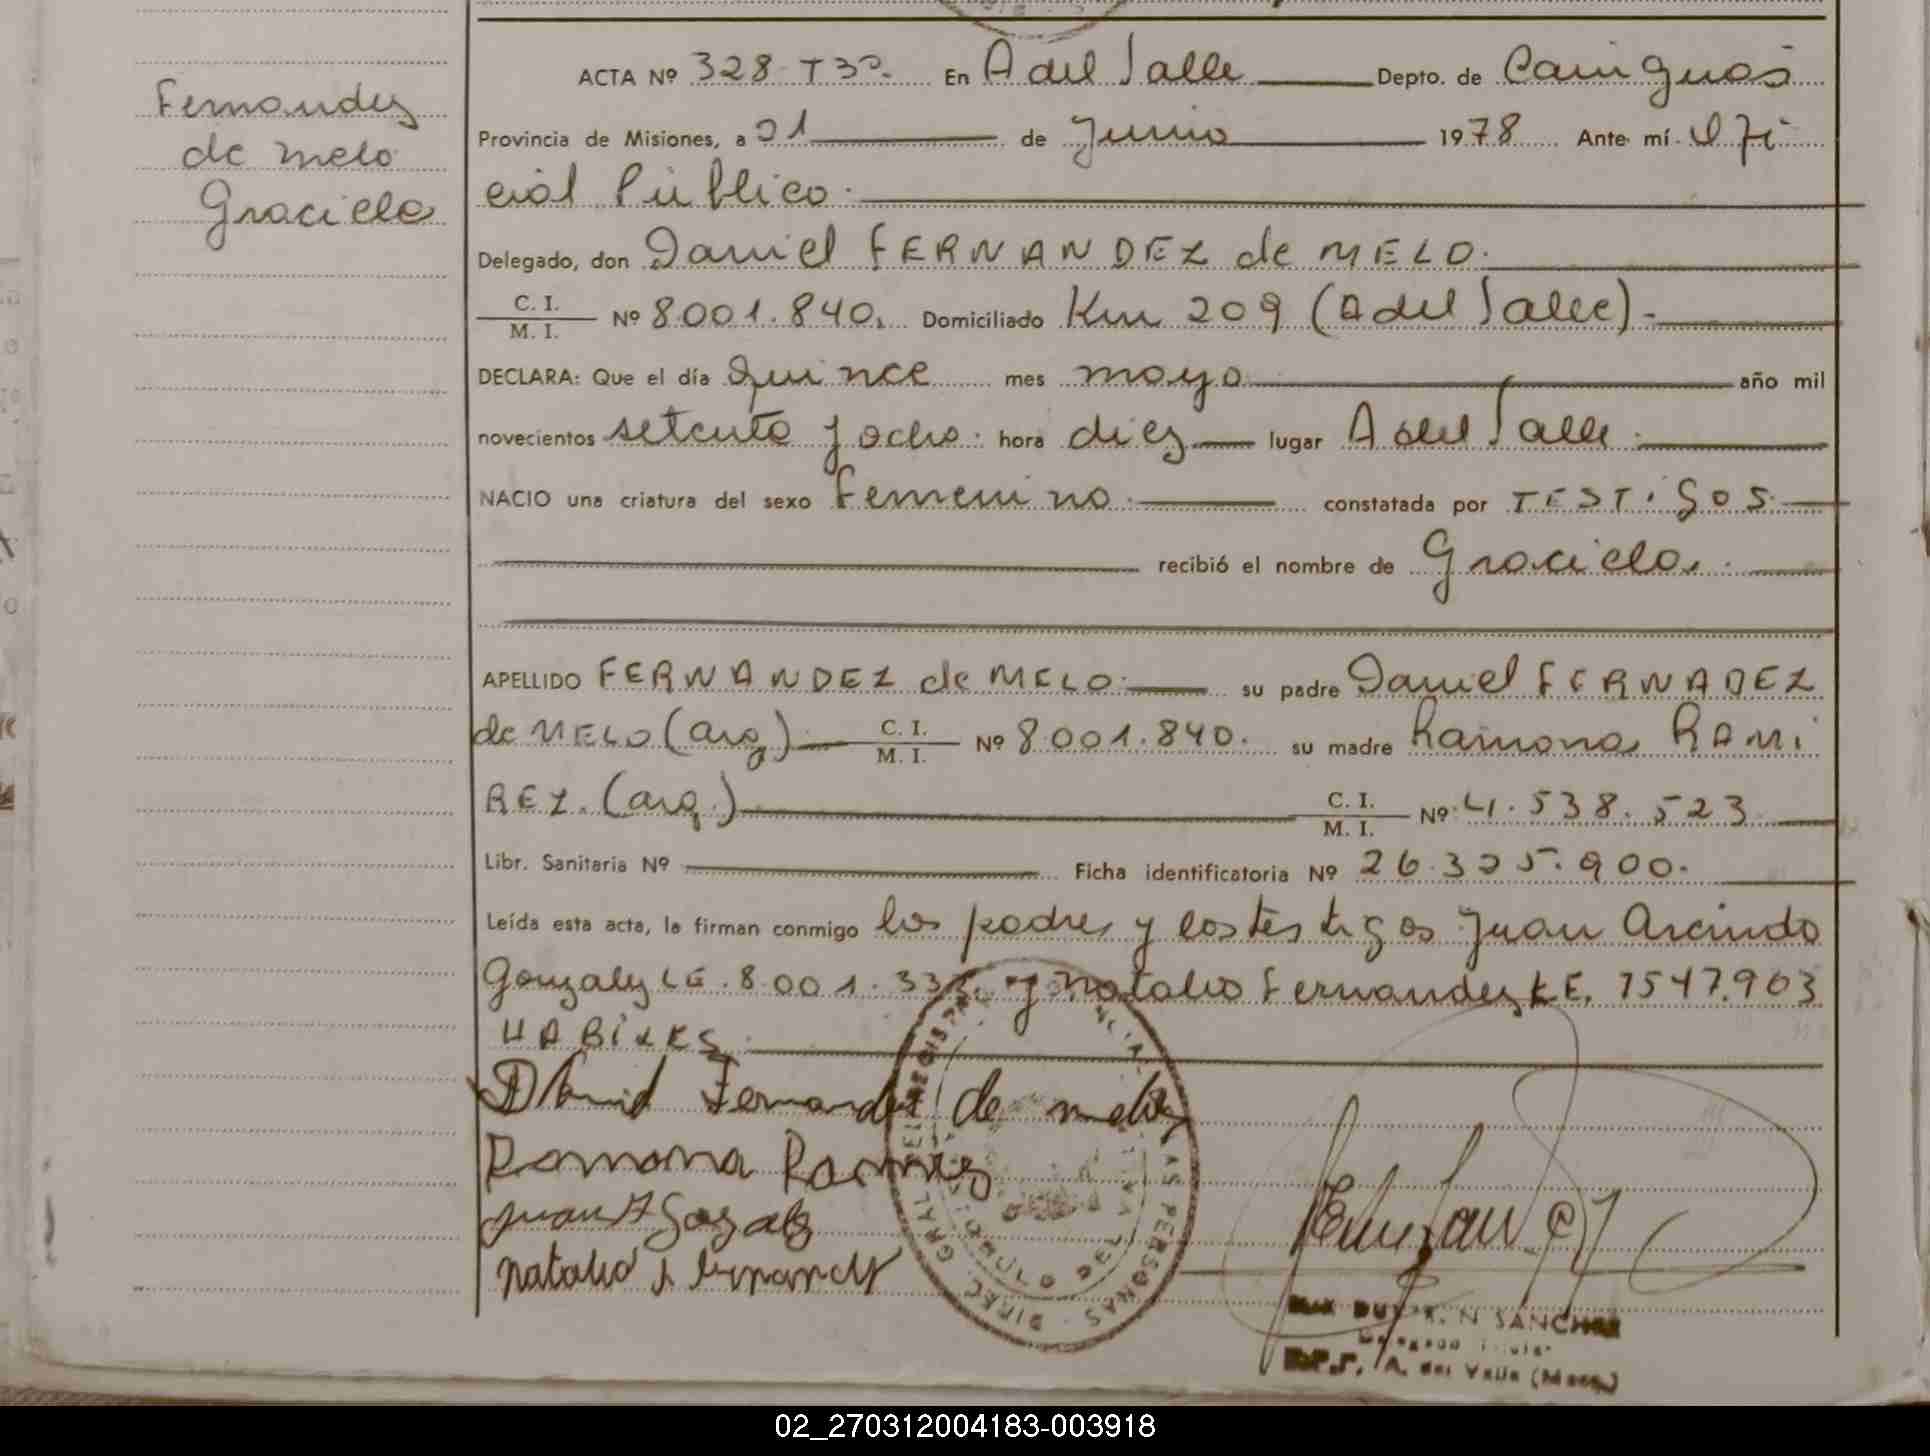 Fernandez
de melo
Graciela
ACTA Nº 328 T3º. En A del Valle Depto. de Cainguas
Provincia de Misiones, a 21 de Junio 1978 Ante mí Ofi
cial Público.
Delegado, don Daniel FERNANDEZ de MELO.
C. I.
M. I. Nº 8.001.840. Domiciliado Km 209 (A del Valle).
DECLARA: Que el día quince mes mayo año mil
novecientos setenta y ocho. hora diez lugar A del Valle.
NACIO una criatura del sexo femenino. constatada por TESTIGOS.
recibió el nombre de Graciela.
APELLIDO FERNANDEZ de MELO. su padre Daniel FERNADEZ
de MELO (arg) C. I.
M. I. Nº 8.001.840. su madre Ramona RAMI
REZ. (arg.) C. I.
M. I. Nº 4.538.523
Libr. Sanitaria Nº Ficha identificatoria Nº 26.325.900.
Leída esta acta, la firman conmigo los padres y los testigos Juan Arcindo
Gonzalez LE. 8.001. y Natalio Fernandez L.E. 7547.903
HABILES.
Daniel Fernandez de melo
Ramona Ramirez
Juan A Gozalez
natalio Fernandez
DIREC. GRAL. DEL REGISTRO PROVINCIAL DE LAS PERSONAS
SANCHEZ
A. del Valle (Mnes.)
02_270312004183-003918